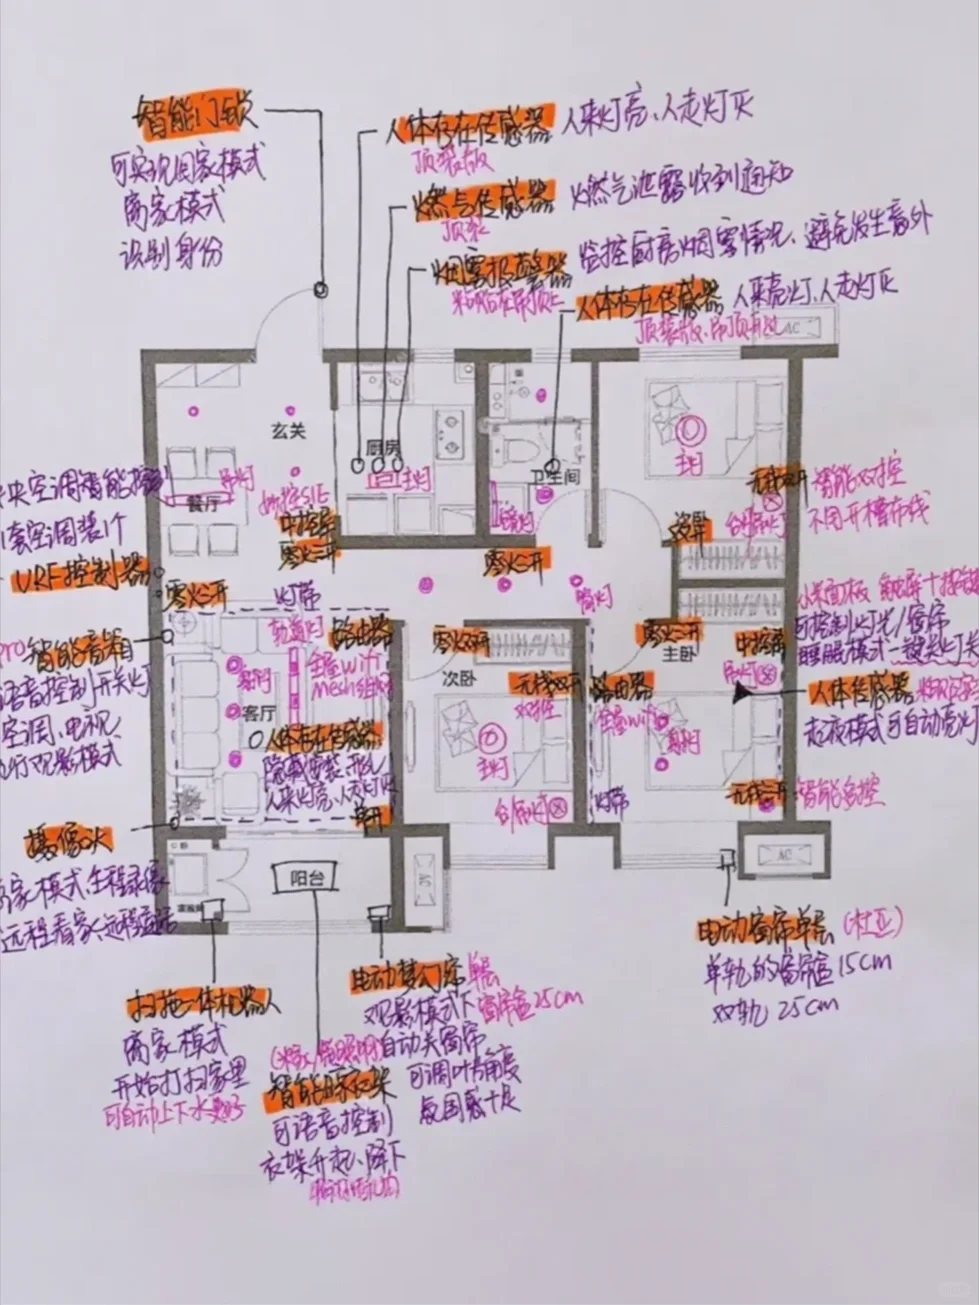 智能门锁
可实现回家模式
离家模式
识别身份
人体存在传感器 人来灯亮、人走灯灭
顶装版
燃气传感器 燃气泄露收到通知
顶装
烟雾报警器 监控厨房烟雾情况、避免发生意外
粘贴在吊顶上
人体存在传感器 人来亮灯、人走灯灭
顶装版、吊顶开孔
AC
玄关
厨房
主灯
卫生间
主灯
无线双开 智能双控
不同开槽布线
台灯
次卧
央空调智能控制
套空调装1个
VRF控制器
餐厅
吊灯
中控屏
零火三开
零火二开
零火二开
灯带
筒灯
智能音箱
语音控制开关灯
空调、电视、
观影模式
轨道灯
路由器
全屋wifi
mesh组网
客厅
人体存在传感器
隐藏安装、形儿
人来灯亮、人走灯灭
单开
零火双开
次卧
无线双开
双控
主灯
台灯
零火二开
主卧
中控屏
可控制灯光/窗帘
睡眠模式一键关灯
路由器
全屋wifi
人体传感器
起夜模式可自动亮灯
灯带
无线二开 智能多控
摄像头
离家模式、全程录像
远程看家、远程通话
阳台
AC
AC
扫拖一体机器人
离家模式
开始打扫家里
可自动上下水更好
智能晾衣架
可语音控制
衣架升起、降下
电动梦幻帘 单层
观影模式下 窗帘盒25cm
自动关窗帘
可调叶片角度
氛围感十足
电动窗帘单层 (杜亚)
单轨的窗帘盒15cm
双轨 25cm